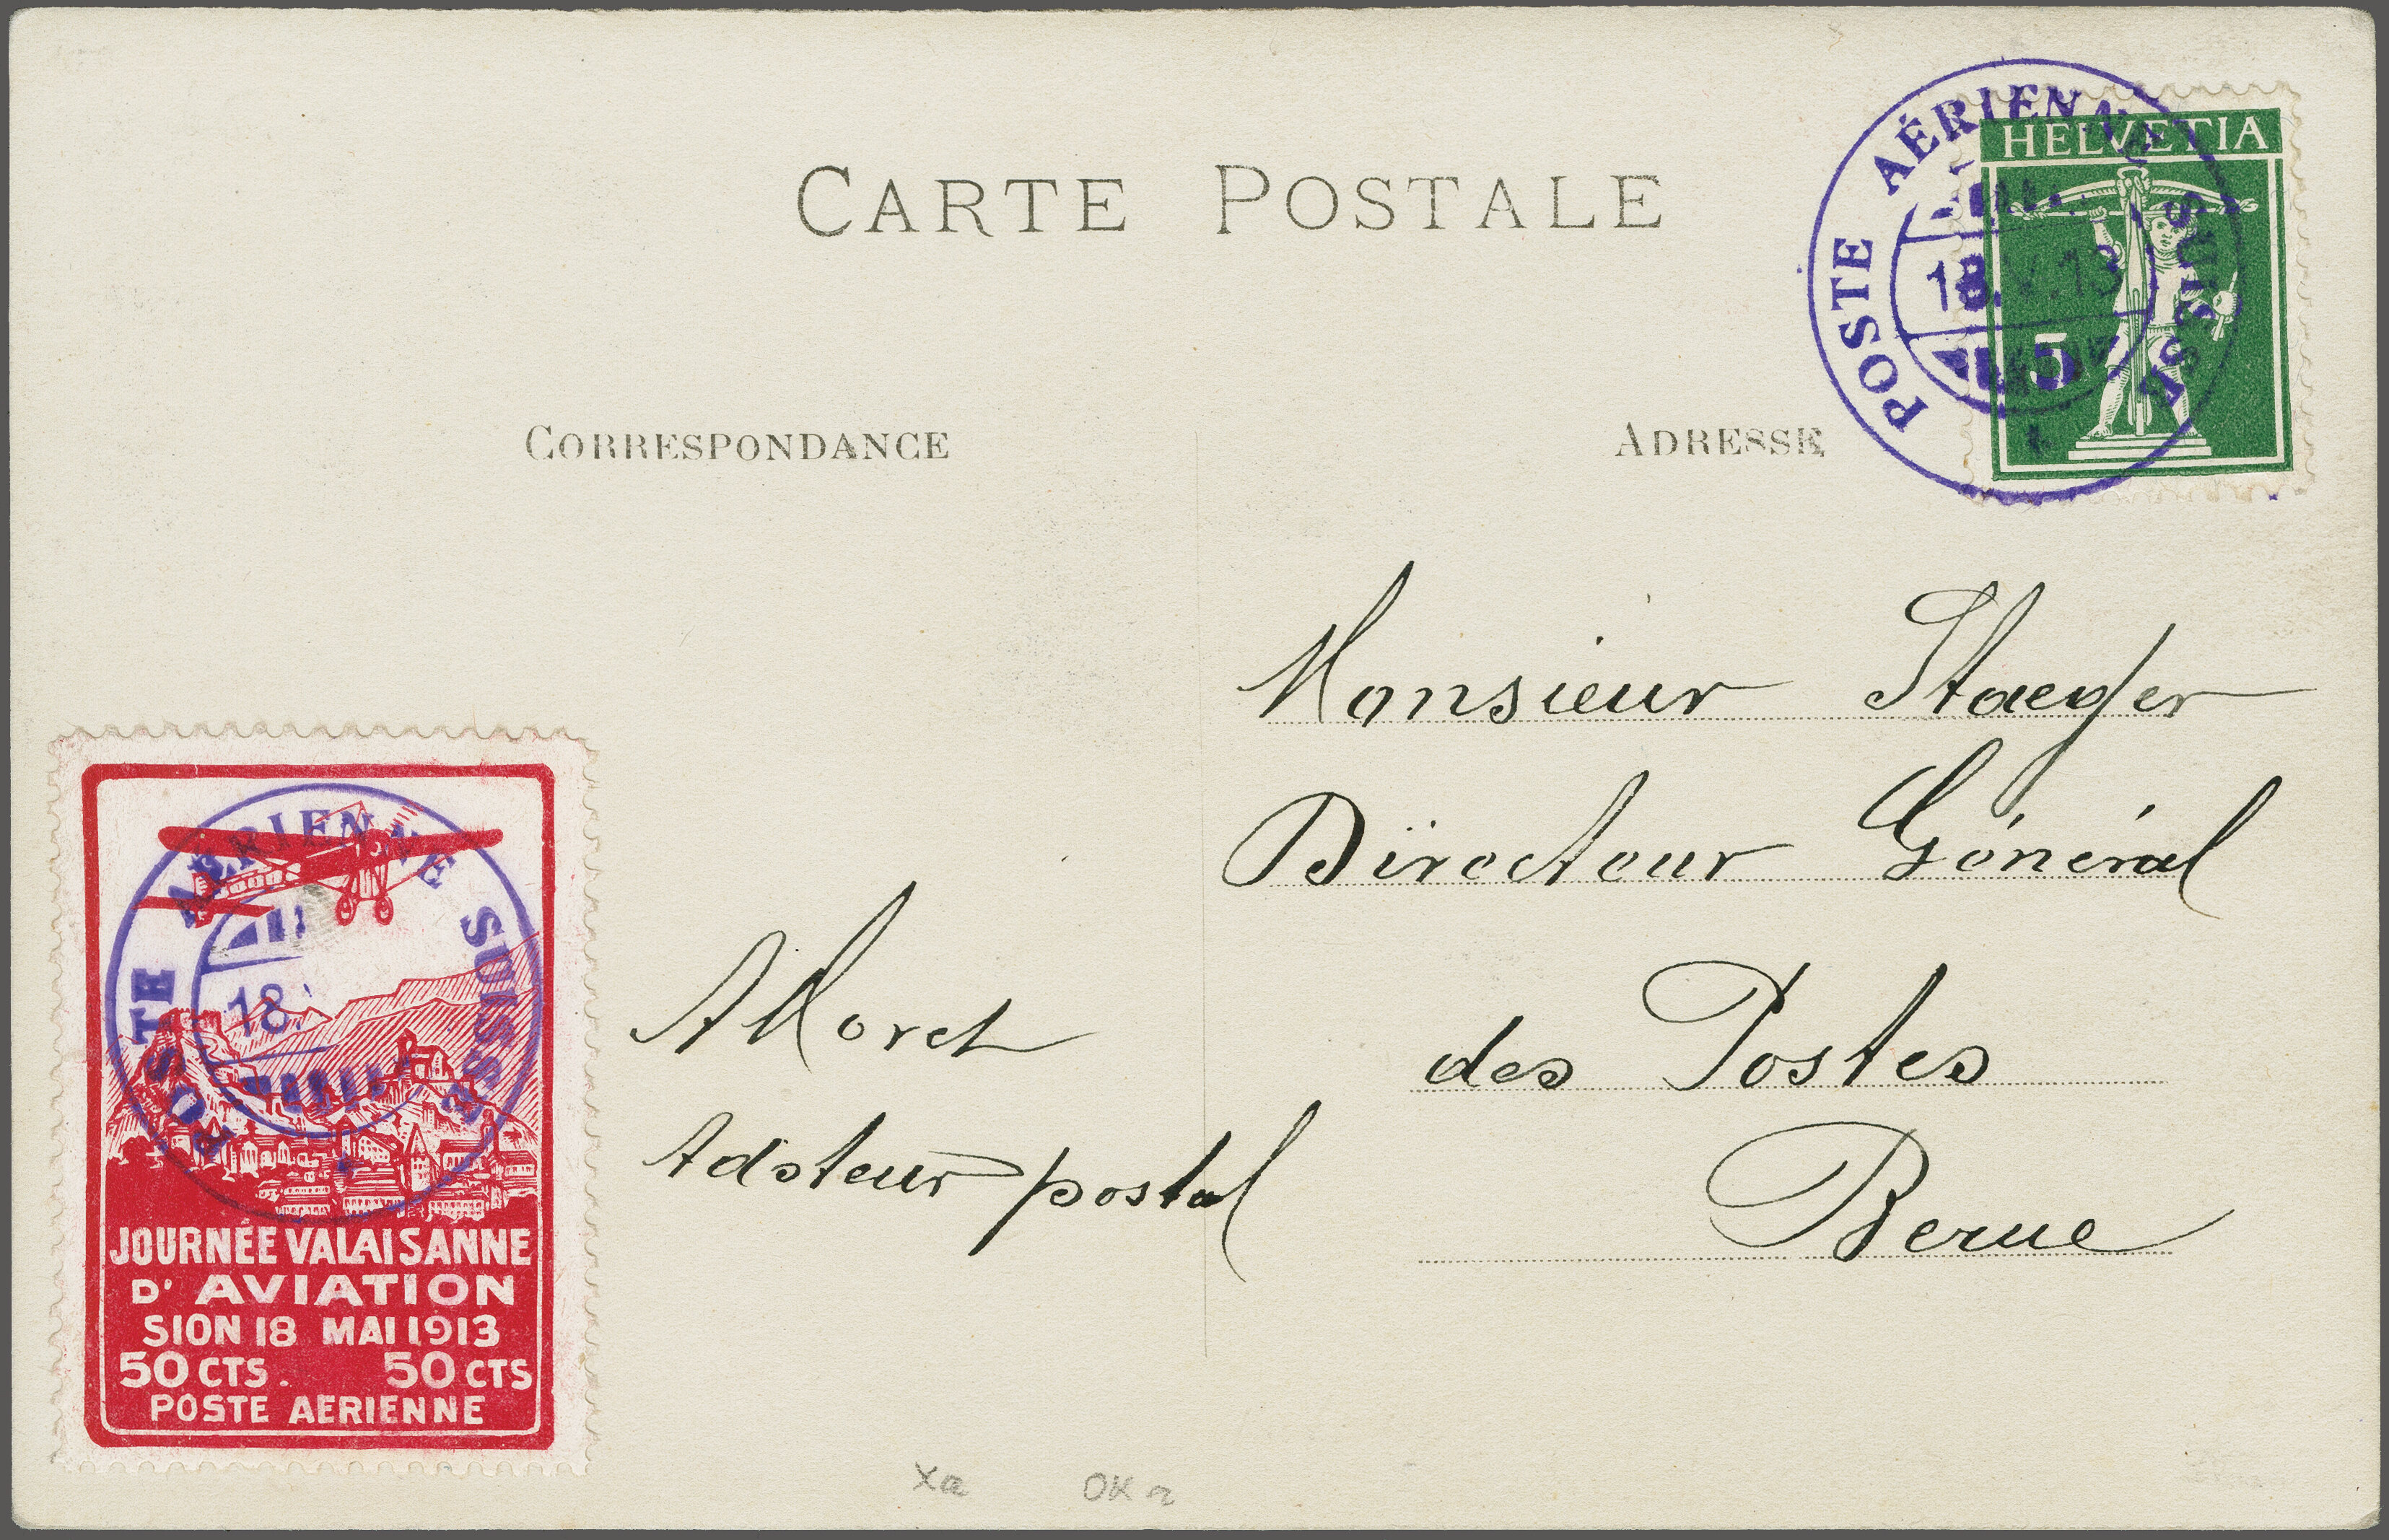 CARTE POSTALE
POSTE AÉRIENNE SUISSE
18.V.13
HELVETIA
5
CORRESPONDANCE
ADRESSE
Monsieur Staeger
Directeur Général
des Postes
Berne
postal
POSTE AÉRIENNE SUISSE
18.
JOURNÉE VALAISANNE
D' AVIATION
SION 18 MAI 1913
50 CTS. 50 CTS
POSTE AERIENNE
Xa OK